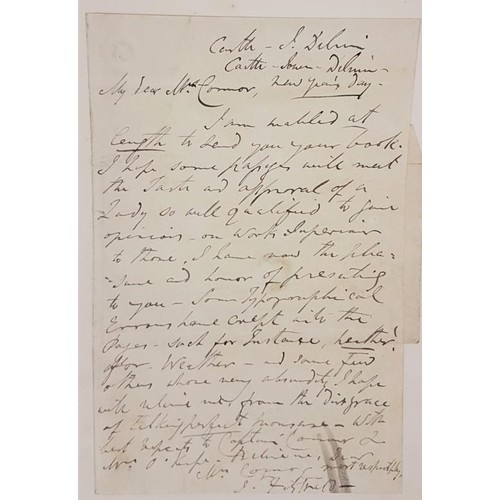 Castle - J. Delvin
Castle-Town-Delvin-
New Year's Day-
My dear Mrs Connor,
I am enabled at
length to send you your book.
I hope some pages will meet
the Taste and approval of a
Lady so well qualified to give
opinions - on Works Superior
to those, I have now the plea-
-sure and honor of presenting
to you - Some Typographical
Errors have crept into the
Pages - such for Instance, heather!
for Weather - and some few
others whose very absurdity I hope
will relieve me from the disgrace
of - With
best respects to Captain Connor &
Mrs O' believe, dear
Mrs Connor, most respectfully
J.